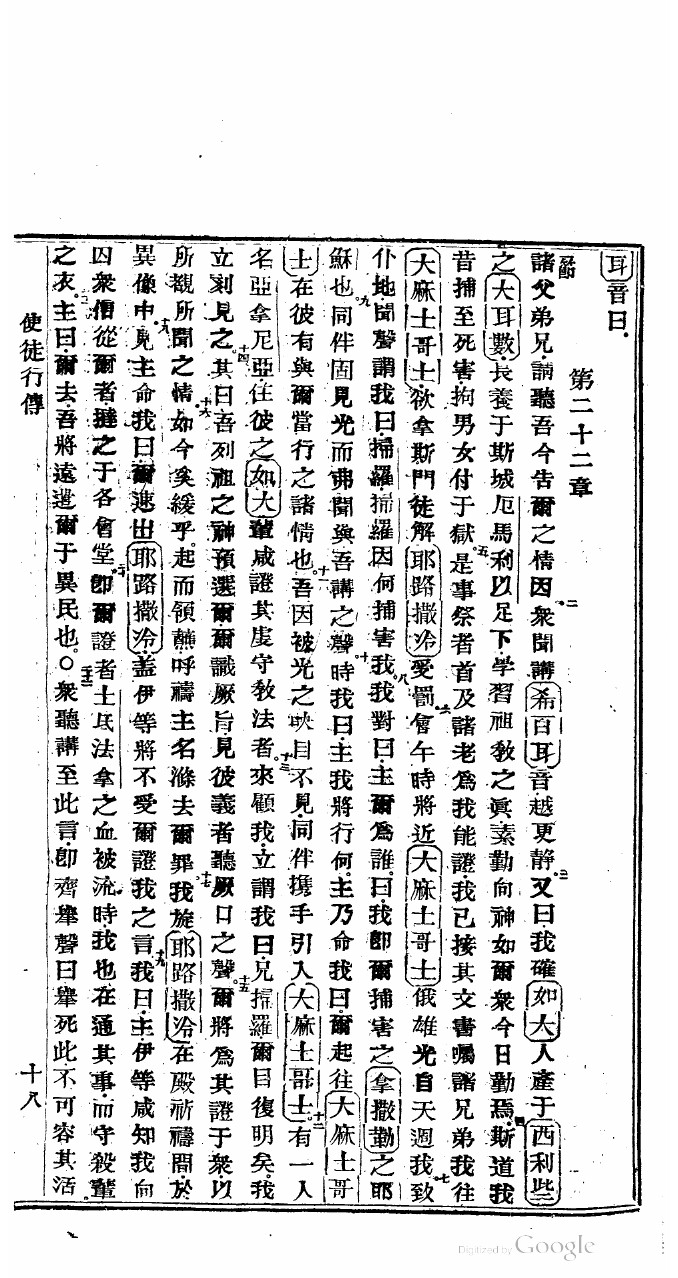 耳音曰
第二十二章
諸父弟兄請聽吾今告爾之情因衆聞講希百耳音越更靜又曰我確如大人產于西利些
之大耳數長養于斯城厄馬利以足下學習祖敎之眞素勤向神如爾衆今日勤焉斯道我
昔捕至死害拘男女付于獄是事祭者首及諸老爲我能證我已接其文書囑諸兄弟我往
大麻士哥士欲拿斯門徒解耶路撒冷受罰會午時將近大麻士哥士俄雄光自天週我致
仆地聞聲謂我曰掃羅掃羅因何捕害我我對曰主爾爲誰曰我卽爾捕害之拿撒勒之耶
穌也同伴固見光而弗聞與吾講之聲時我曰主我將行何主乃命我曰爾起往大麻士哥
士在彼有與爾當行之諸情也吾因被光之映目不見同伴携手引入大麻士哥士有一人
名亞拿尼亞住彼之如大輩咸證其虔守敎法者來顧我立謂我曰兄掃羅爾目復明矣我
立刻見之其曰吾列祖之神預選爾爾識厥旨見彼義者聽厥口之聲爾將爲其證于衆以
所觀所聞之情如今奚緩乎起而領蘸呼禱主名滌去爾罪我旋耶路撒冷在殿祈禱間於
異像中見主命我曰爾速出耶路撒冷盖伊等將不受爾證我之言我曰主伊等咸知我向
因衆信從爾者撻之于各會堂卽爾證者士氐法拿之血被流時我也在通其事而守殺輩
之衣主曰爾去吾將遠遣爾于異民也○衆聽講至此言卽齊擧聲曰擧死此不可容其活
使徒行傳
十八
Digitized by Google